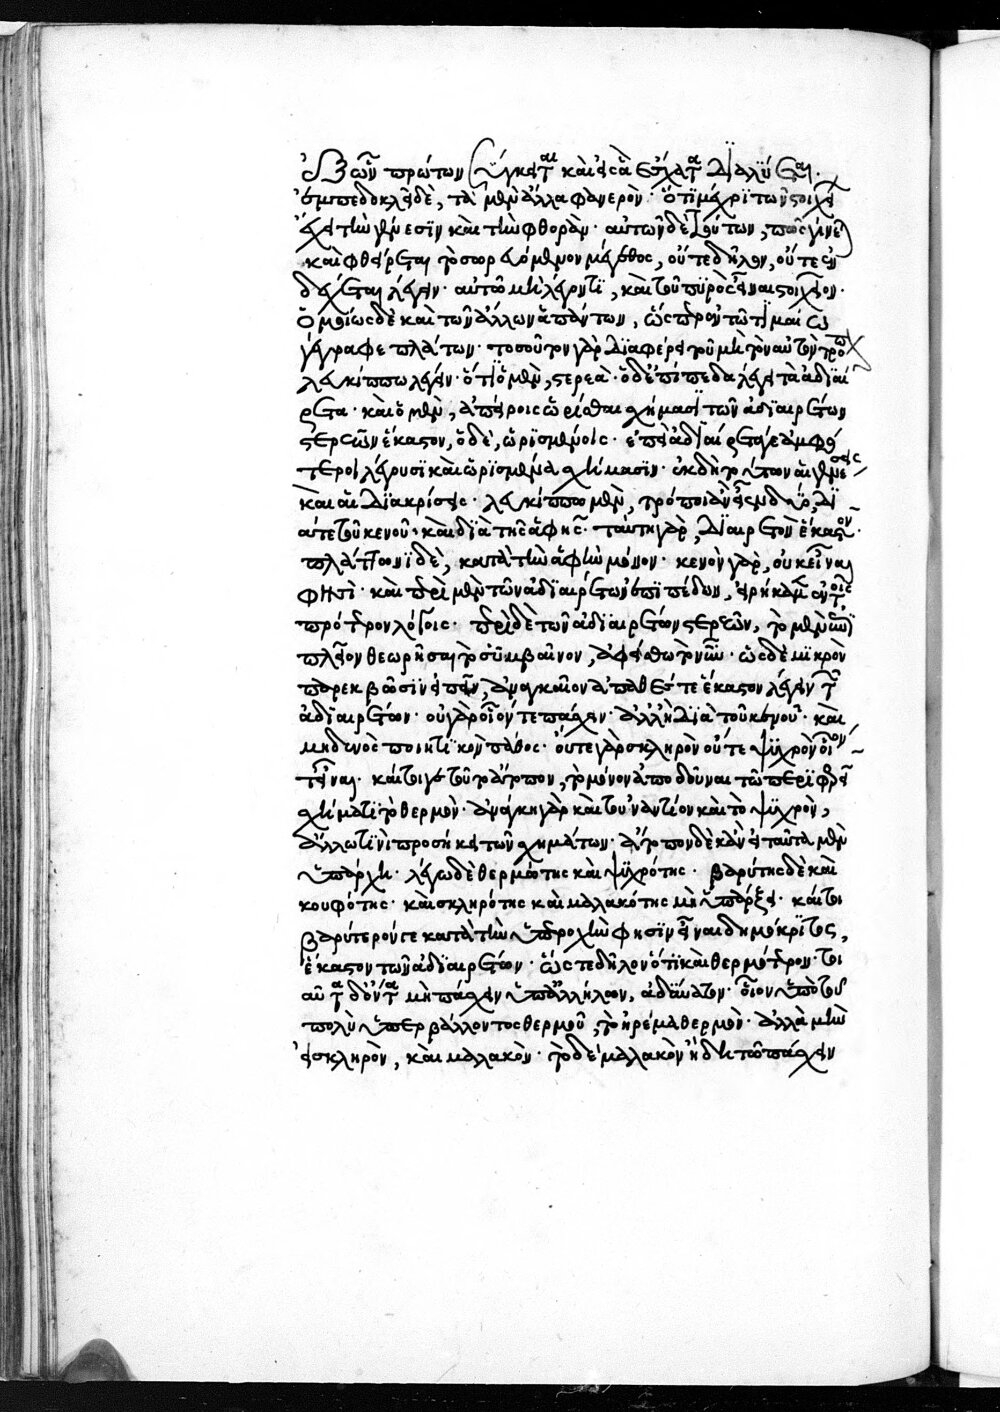 ἐξ ὧν πρώτων σύγκειται καὶ εἰς ἃ ἔσχατα διαλύεται.
ἐμπεδοκλεῖ δὲ, τὰ μὲν ἄλλα φανερὸν· ὅτι μέχρι τῶν στοιχεί
ἔχει τὴν γένεσιν καὶ τὴν φθορὰν· αὐτῶν δὲ τούτων, πῶς γίνεται
καὶ φθείρεται τὸ σωρευόμενον μέγεθος, οὔτε δῆλον, οὔτε ἐν
δέχεται λέγειν· αὐτῶ μὴ λέγοντι, καὶ τοῦ πυρὸς εἶναι στοιχεῖον·
ὁμοίως δὲ καὶ τῶν ἄλλων ἁπάντων, ὥσπερ ἐν τῶ τιμαίω
γέγραφε πλάτων· τοσοῦτον γὰρ διαφέρει τοῦ μὴ τὸν αὐτὸν τρόπον
λευκίππω λέγειν· ὅτι ὁ μὲν, στερεὰ· ὁ δ' ἐπίπεδα λέγει τὰ ἀδιαί
ρετα· καὶ ὁ μὲν, ἀπείροις ὡρίσθαι σχήμασι τῶν ἀδιαιρέτων
στερεῶν ἕκαστον, ὁ δὲ, ὡρισμένοις· ἐπεὶ ἀδιαίρετά γε ἀμφό
τεροι λέγουσι καὶ ὡρισμένα σχήμασιν· ἐκ δὴ τούτων αἱ γενέσεις
καὶ αἱ διακρίσεις· λευκίππω μὲν, τρόποι ἂν εἶεν δύο, δι
ά τε τοῦ κενοῦ· καὶ διὰ τῆς ἁφῆς· ταύτη γὰρ, διαιρετὸν ἕκαστον·
πλάτωνι δὲ, κατὰ τὴν ἁφὴν μόνον· κενὸν γὰρ, οὐκ εἶναι
φησὶ· καὶ περὶ μὲν τῶν ἀδιαιρέτων ἐπιπέδων, εἰρήκαμεν ἐν τοῖς
πρότερον λόγοις· περὶ δὲ τῶν ἀδιαιρέτων στερεῶν, τὸ μὲν ἐπὶ
πλέον θεωρῆσαι τὸ συμβαῖνον, ἀφείσθω τὸ νῦν· ὡς δὲ μικρὸν
παρεκβᾶσιν εἰπεῖν, ἀναγκαῖον ἀπαθές τε ἕκαστον λέγειν τῶν
ἀδιαιρέτων· οὐ γὰρ οἷόν τε πάσχειν· ἀλλ' ἢ διὰ τοῦ κενοῦ· καὶ
μηδενὸς ποιητικὸν πάθος· οὔτε γὰρ σκληρὸν οὔτε ψυχρὸν οἷόν
τ' εἶναι· καίτοι γε τοῦτο ἄτοπον, τὸ μόνον ἀποδοῦναι τῶ περιφερεῖ
σχήματι τὸ θερμὸν· ἀνάγκη γὰρ καὶ τοὐναντίον καὶ τὸ ψυχρὸν,
ἄλλω τινὶ προσήκειν τῶν σχημάτων· ἄτοπον δὲ κἂν εἰ ταῦτα μὲν
ὑπάρχει· λέγω δὲ θερμότης καὶ ψυχρότης· βαρύτης δὲ καὶ
κουφότης· καὶ σκληρότης καὶ μαλακότης μὴ ὑπάρξει· καίτοι
βαρύτερόν γε κατὰ τὴν ὑπεροχὴν φησὶν εἶναι δημόκριτος,
ἕκαστον τῶν ἀδιαιρέτων· ὥστε δῆλον ὅτι καὶ θερμότερον· τοι
αῦτα δ' ὄντα μὴ πάσχειν ὑπ' ἀλλήλων, ἀδύνατον· οἷον ὑπὸ τοῦ
πολὺ ὑπερβάλλοντος θερμοῦ, τὸ ἠρέμα θερμὸν· ἀλλὰ μὴν
εἰ σκληρὸν, καὶ μαλακὸν· τὸ δὲ μαλακὸν ἤδη τῶ πάσχειν